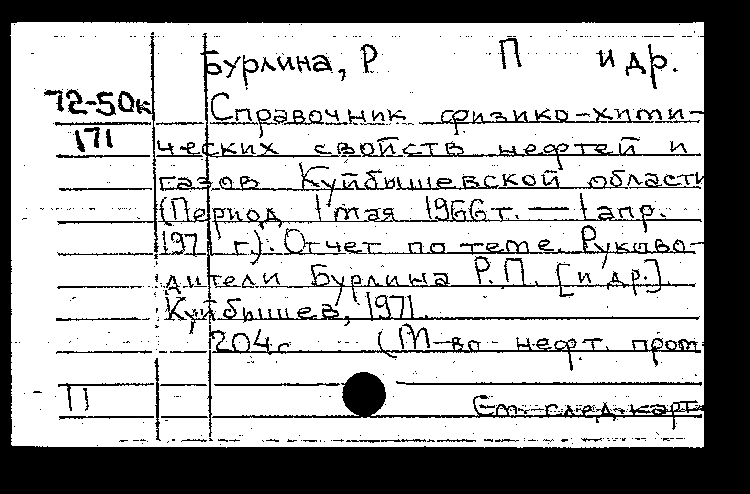 Бурлина, Р П и др.
72-50к Справочник физико-хими-
171 ческих свойств нефтей и
газов Куйбышевской области
(Период 1 мая 1966г. — 1 апр.
1971 г.). Отчет по теме. Руково-
дители Бурлина Р.П. [и др.].
Куйбышев, 1971.
204с (М-во нефт. пром-
11 См. след. карт